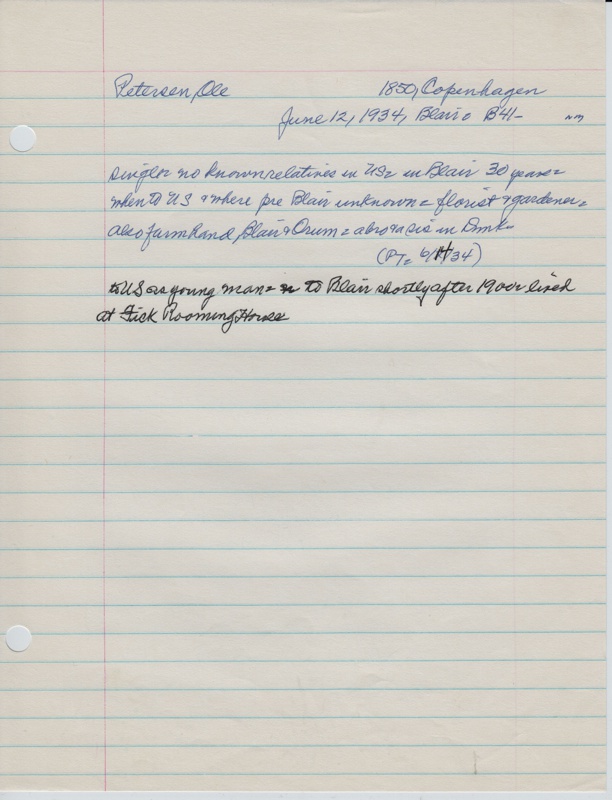 Petersen, Ole 1850, Copenhagen
June 12, 1934, Blair = B41- nm
single = no known relatives in US = in Blair 30 years =
when to US & where pre Blair unknown = florist & gardener =
also farmhand, Blair & Orum = a bro & a sis in Dmk =
(PT = 6/14/34)
to US as young man = to Blair shortly after 1900 = lived
at Fick Rooming House